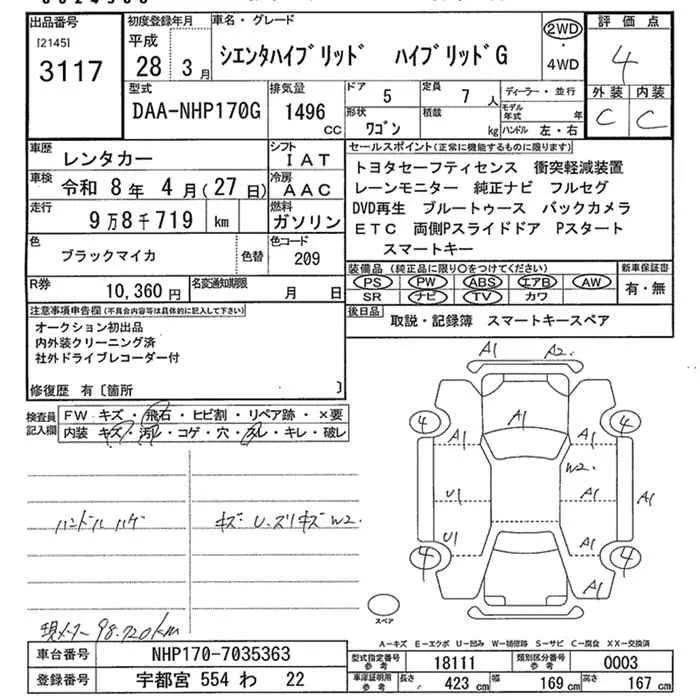 出品番号
[2145]
3117
初度登録年月
平成
28 3月
車名・グレード
シエンタハイブリッド ハイブリッドG
2WD
・
4WD
評価点
4
外装 内装
C C
型式
DAA-NHP170G
排気量
1496
CC
ドア
5
定員
7 人
形状
ワゴン
積載
kg
ディーラー・並行
モデル年式 年
ハンドル 左・右
車歴
レンタカー
シフト
IAT
車検
令和 8年 4月(27日)
冷房
AAC
走行
9万8千719 km
燃料
ガソリン
色
ブラックマイカ
色替
色コード
209
R券
10,360円
名変通知期限
月 日
セールスポイント(正常に機能するものに限ります)
トヨタセーフティセンス 衝突軽減装置
レーンモニター 純正ナビ フルセグ
DVD再生 ブルートゥース バックカメラ
ETC 両側Pスライドドア Pスタート
スマートキー
装備品(純正品に限り○をつけてください)
PS PW ABS エアB AW
SR ナビ TV カワ
新車保証書
有・無
後日品
取説・記録簿 スマートキースペア
注意事項申告欄(不具合内容等は具体的に記入して下さい)
オークション初出品
内外装クリーニング済
社外ドライブレコーダー付
修復歴 有〔箇所 〕
検査員記入欄
FW キズ・飛石・ヒビ割・リペア跡・×要
内装 キズ・汚レ・コゲ・穴・スレ・キレ・破レ
ハンドル ハゲ
キズ・U.スリキズ W2.
現メーター 98.720km
A1 A2.
A1
4 A1 A1 4
W2.
U1 A1 A1
U1 A1
4 4
A1
スペア
A−キズ E−エクボ U−凹み W−補修跡 S−サビ C−腐食 XX−交換済
車台番号
NHP170-7035363
登録番号
宇都宮 554 わ 22
型式指定番号
参考
18111
類別区分番号
参考
0003
車庫証明用
参考
長さ 423 cm
幅 169 cm
高さ 167 cm